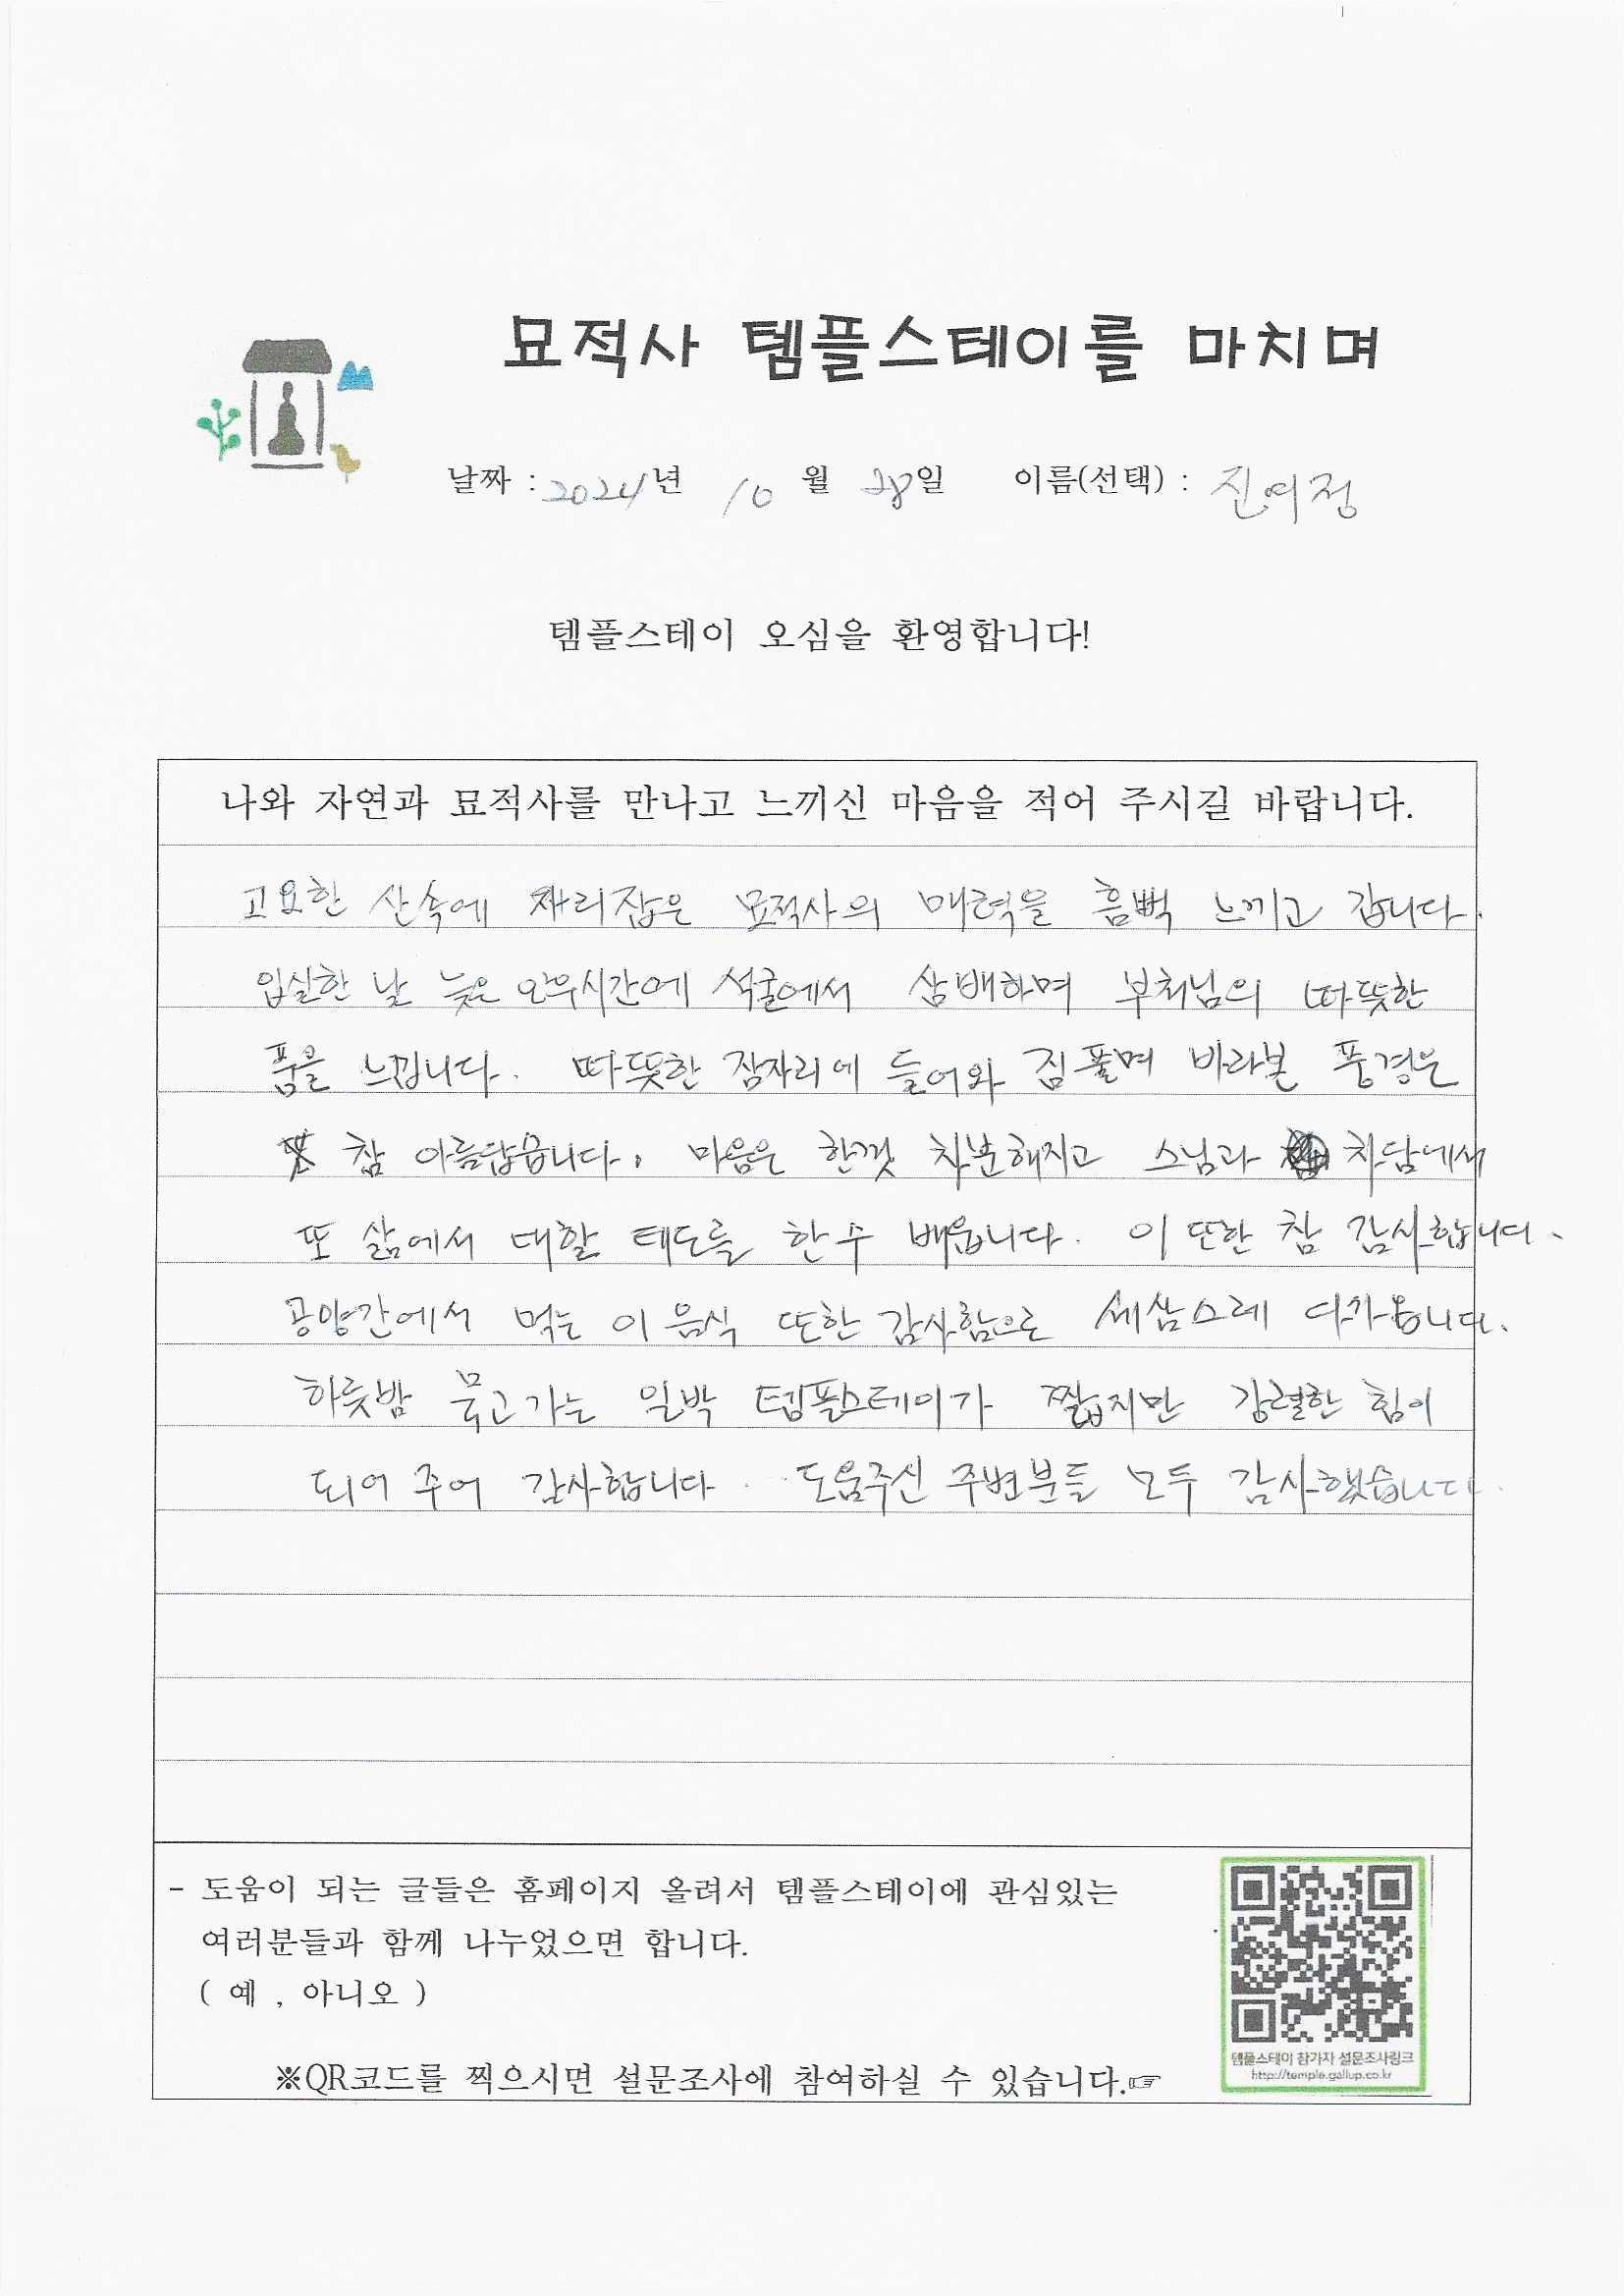 묘적사 템플스테이를 마치며
날짜 : 2024년 10월 28일 이름(선택) : 진여정
템플스테이 오심을 환영합니다!
나와 자연과 묘적사를 만나고 느끼신 마음을 적어 주시길 바랍니다.
고요한 산속에 자리잡은 묘적사의 매력을 흠뻑 느끼고 갑니다.
입실한 날 늦은 오후시간에 석굴에서 삼배하며 부처님의 따뜻한
품을 느낍니다. 따뜻한 잠자리에 들어와 짐풀며 바라본 풍경은
참 아름답습니다. 마음은 한껏 차분해지고 스님과 차담에서
또 삶에서 대할 태도를 한수 배웁니다. 이 또한 참 감사합니다.
공양간에서 먹는 이 음식 또한 감사함으로 세삼스레 다가옵니다.
하룻밤 묵고가는 일박 템플스테이가 짧지만 강렬한 힘이
되어 주어 감사합니다. 도움주신 주변분들 모두 감사했습니다.
- 도움이 되는 글들은 홈페이지 올려서 템플스테이에 관심있는
여러분들과 함께 나누었으면 합니다.
( 예 , 아니오 )
※QR코드를 찍으시면 설문조사에 참여하실 수 있습니다.☞
템플스테이 참가자 설문조사링크
http://temple.gallup.co.kr